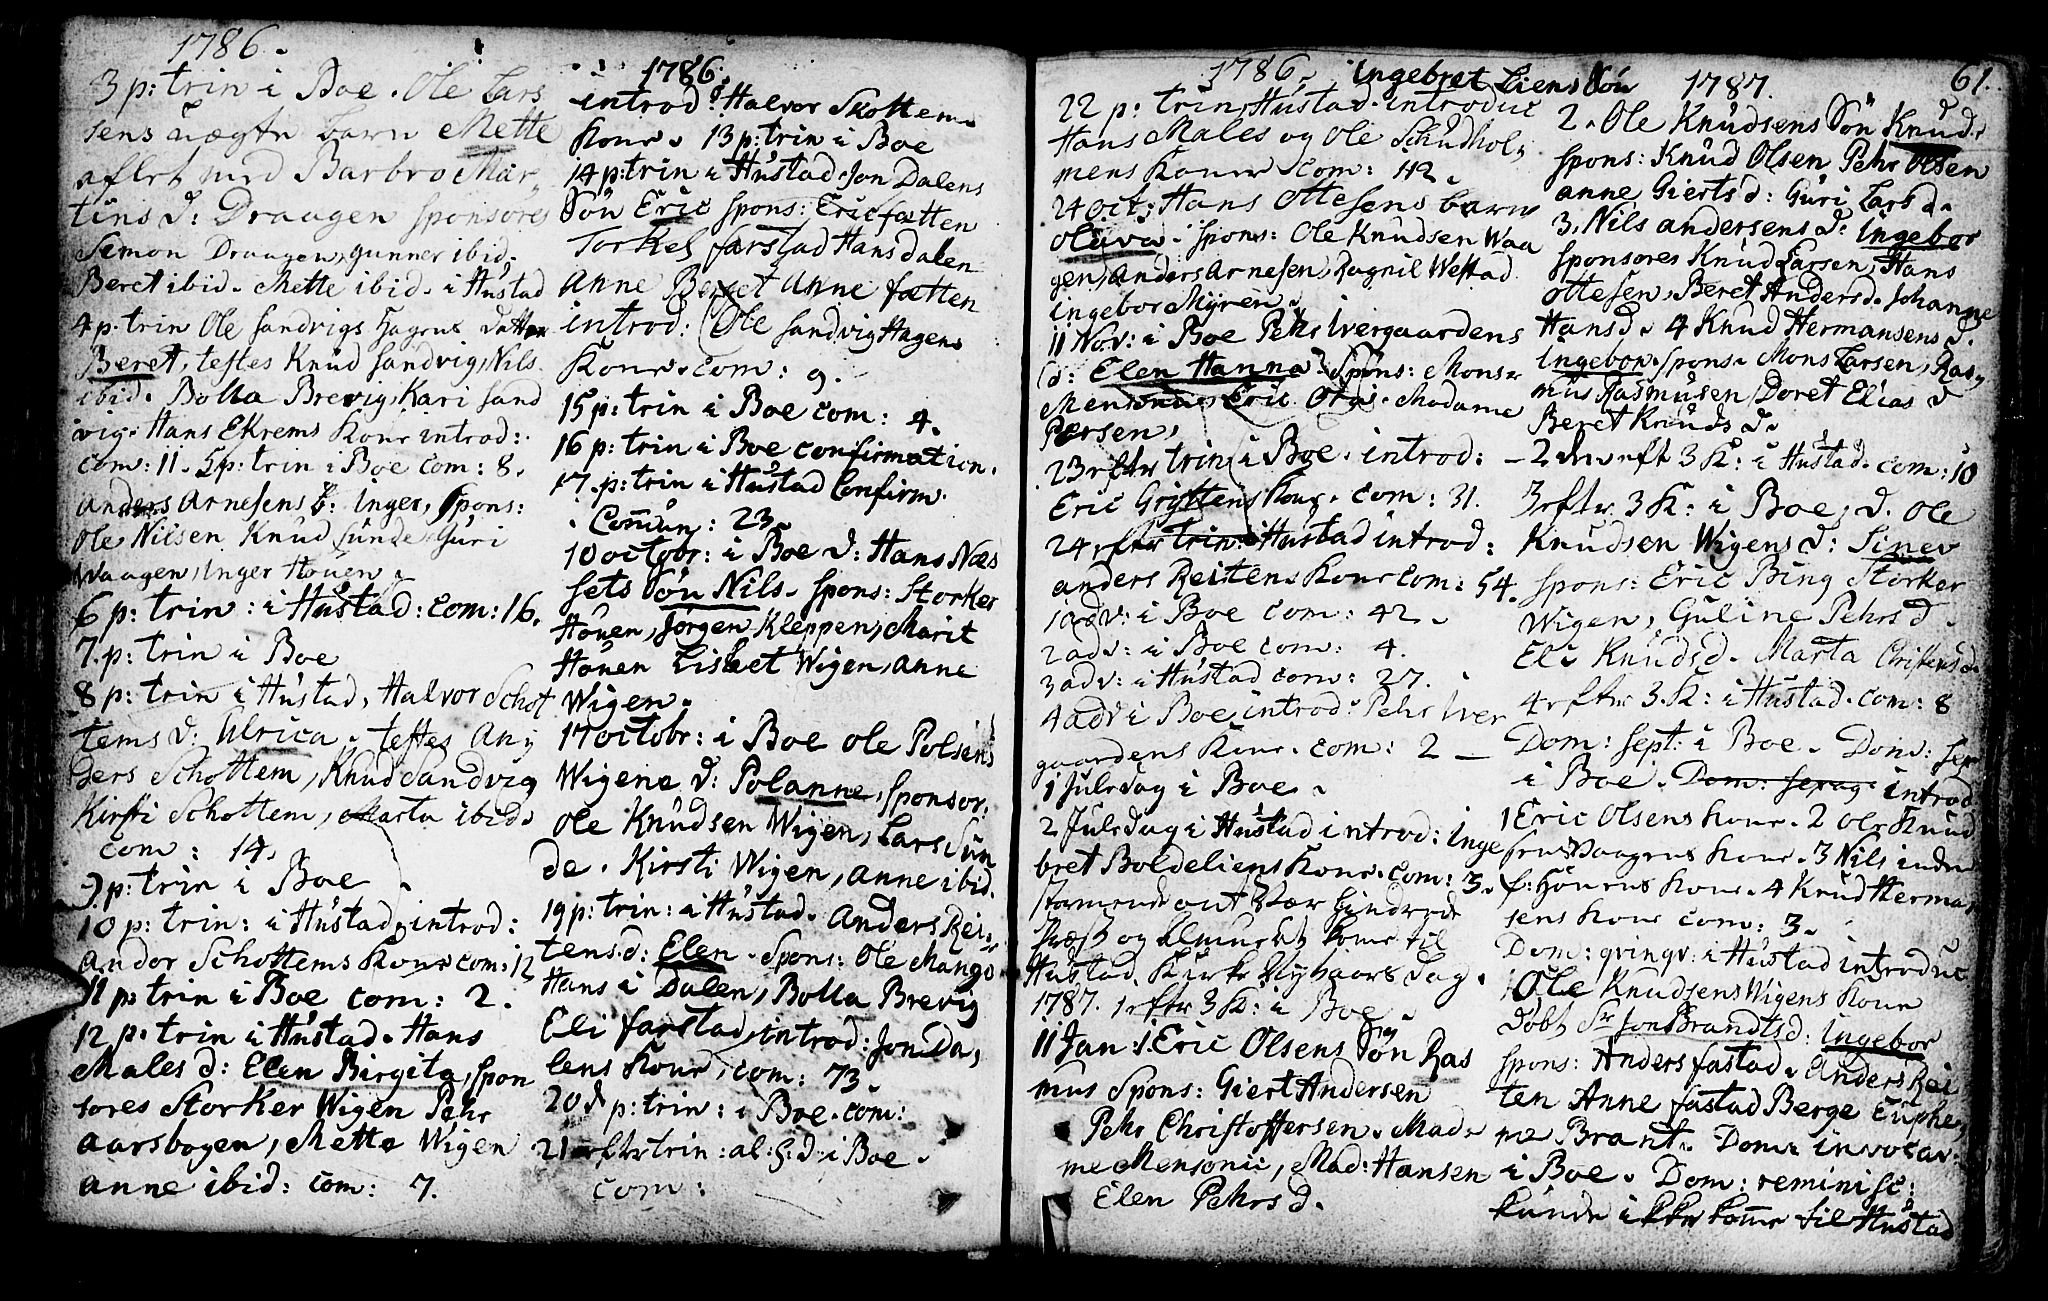 1786.
3 p: trin i Boe. Ole Lars
sens uægte barn Mette
aflet med Barbro Mar,
tins d: Draagen sponsores
Semon Draagen, gunner ibid.
Beret ibid. Mette ibid. i Hustad
4 p. trin Ole Sandvigs Hagens datter
Beret, testes Knud Sandvig, Nils
ibid. Bolla Brevig, Kari Sand
vig. Hans Ekrems Kone introd:
com: 11. 5 p: trin i Boe com: 8.
Anders Arnesens b: Inger, Spons:
Ole Nilsen Knud Sunde Guri
Waagen, Inger Houen.
6 p: trin: i Hustad: com: 16.
7. p: trin i Boe
8 p: trin i Hustad, Halvor Schot
tems d: Ulrica. testes An,
ders Schottem, Knud Sandvig
Kirsti Schottem, Marta ibid.
com: 14.
9. p: trin i Boe
10 p: trin: i Hustad, introd:
Andor Schottems Kone com: 12
11 p: trin i Boe com: 2.
12 p: trin i Hustad. Hans
Males d: Elen Birgita, spon
sores Storker Wigen Pehr
aarsbogen, Mette Wigen
anne ibid: com: 7.
1786.
introd: Halvor Skottems
Kone. 13 p: trin i Boe
14 p: trin i Hustad. Jon Dalens
Sön Eric spons: Eric fætten
Torkel farstad Hans dalen
Anne Beret Anne fætten
introd: Ole Sandvig Hagens
Kone. com: 9.
15 p: trin i Boe com: 4.
16 p: trin i Boe confirmation.
17. p: trin i Hustad Confirm.
Comun: 23
10 octobr: i Boe d: Hans Næs
sets Sön Nils. Spons: Storker
Houen, Jörgen Kleppen, Marit
Houen Lisbet Wigen, anne
Wigen.
17 octobr: i Boe ole Polsens
Wigene d: Polanne, sponsor.
Ole Knudsen Wigen, Lars Sun
de. Kirsti Wigen, anne ibid.
19 p: trin: i Hustad. Anders Rei,
tens d: Elen. Spons: Ole Mango
Hans i Dalen, Bolla Brevig
Eli farstad, introd: Jon Da,
lens Kone, com: 73.
20 d p: trin: i Boe. com:
21 efter trin: al: h: d: i Boe.
com:
1786. Ingebret Liens Sön
22 p: trin, Hustad. introduc
Hans Males og Ole Schudhol,
mens Koner com: 42.
24 oct: Hans Ottesens barn
Oluva. spons: Ole Knudsen Waa
gen, Anders Arnesen, Ragnil Westad
ingebor Myren.
11 Nov: i Boe Pehr Ivergaardens
d: Elen Hanna. Spons: Mons:
Mensonie, Eric Otri. Madame
Pærsen,
23 efter trin i Boe. introd:
Eric Gryttens Kone. com: 31.
24 efter trin: i Hustad introd:
anders Reitens Kone com: 54.
1 adv: i Boe com: 42.
2 adv: i Boe com: 4.
3 adv: i Hustad com: 27.
4 adv i Boe introd: Pehr Iver
gaardens Kone. com: 2 —
1 Juledag i Boe.
2 Juledag i Hustad introd: Inge
bret Boldeliens Kone. com: 3.
stormende ont Vær hindrede
Præst og almuen, kome til
Hustad. Kirke Nyhaars dag.
1787. 1 efter 3 K: i Boe.
11 Jan: 1. Eric Olsens Sön Ras
mus Spons: Giert Andersen
Pehr Christoffersen. Mada
me Mensonie, Mad: Hansen
Elen Pehrs d.
1787. 61.
2. Ole Knudsens Sön Knud.
spons: Knud Olsen Pehr Olsen
anne Gierts d: Guri Lars d.
3. Nils andersens d: Ingebor
sponsores Knud Larsen, Hans
ottesen, Beret Anders d. Johanne
Hans d. 4 Knud Hermansens d.
Ingebor. spons. Mons Larsen, Ras,
mus Rasmusen, Doret Elias d
Beret Knuds d.
— 2 den eft 3 K: i Hustad. com: 10
3 efter 3 K: i Boe, d. Ole
Knudsen Wigens d: Sinev
spons: Eric Bing Storker
Wigen, Guline Pehrs d.
Eli Knuds d. Marta Christens d.
4 efter 3. K: i Hustad. com: 8
Dom: sept: i Boe. Dom: sex
i Boe. Dom: sexag: introd
1 Eric Olsens Kone. 2 Ole Knud
sens Waagens Kone. 3 Nils under
f: Höuens Kone. 4 Knud Herman
sens Kone com: 3.
Dom: qvinqv: i Hustad introduc
Ole Knudsens Wigens Kone
döbt Sr Jon Brandts d: Ingebor
spons: Anders fastad. Anders Rei
ten Anne fastad Berge Euphe,
me Brant. Dom: invocav:
i Boe. Dom: reminisc:
kunde ikke kome til Hustad